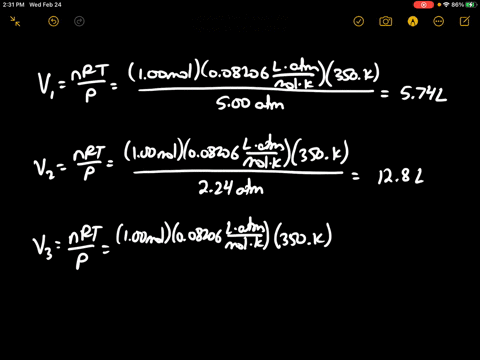 2:31 PM Wed Feb 24
86%
V₁ = nRT/P = (1.00mol)(0.08206 L·atm/mol·K)(350.K) / 5.00 atm = 5.74L
V₂ = nRT/P = (1.00mol)(0.08206 L·atm/mol·K)(350.K) / 2.24 atm = 12.8L
V₃ = nRT/P = (1.00mol)(0.08206 L·atm/mol·K)(350.K)